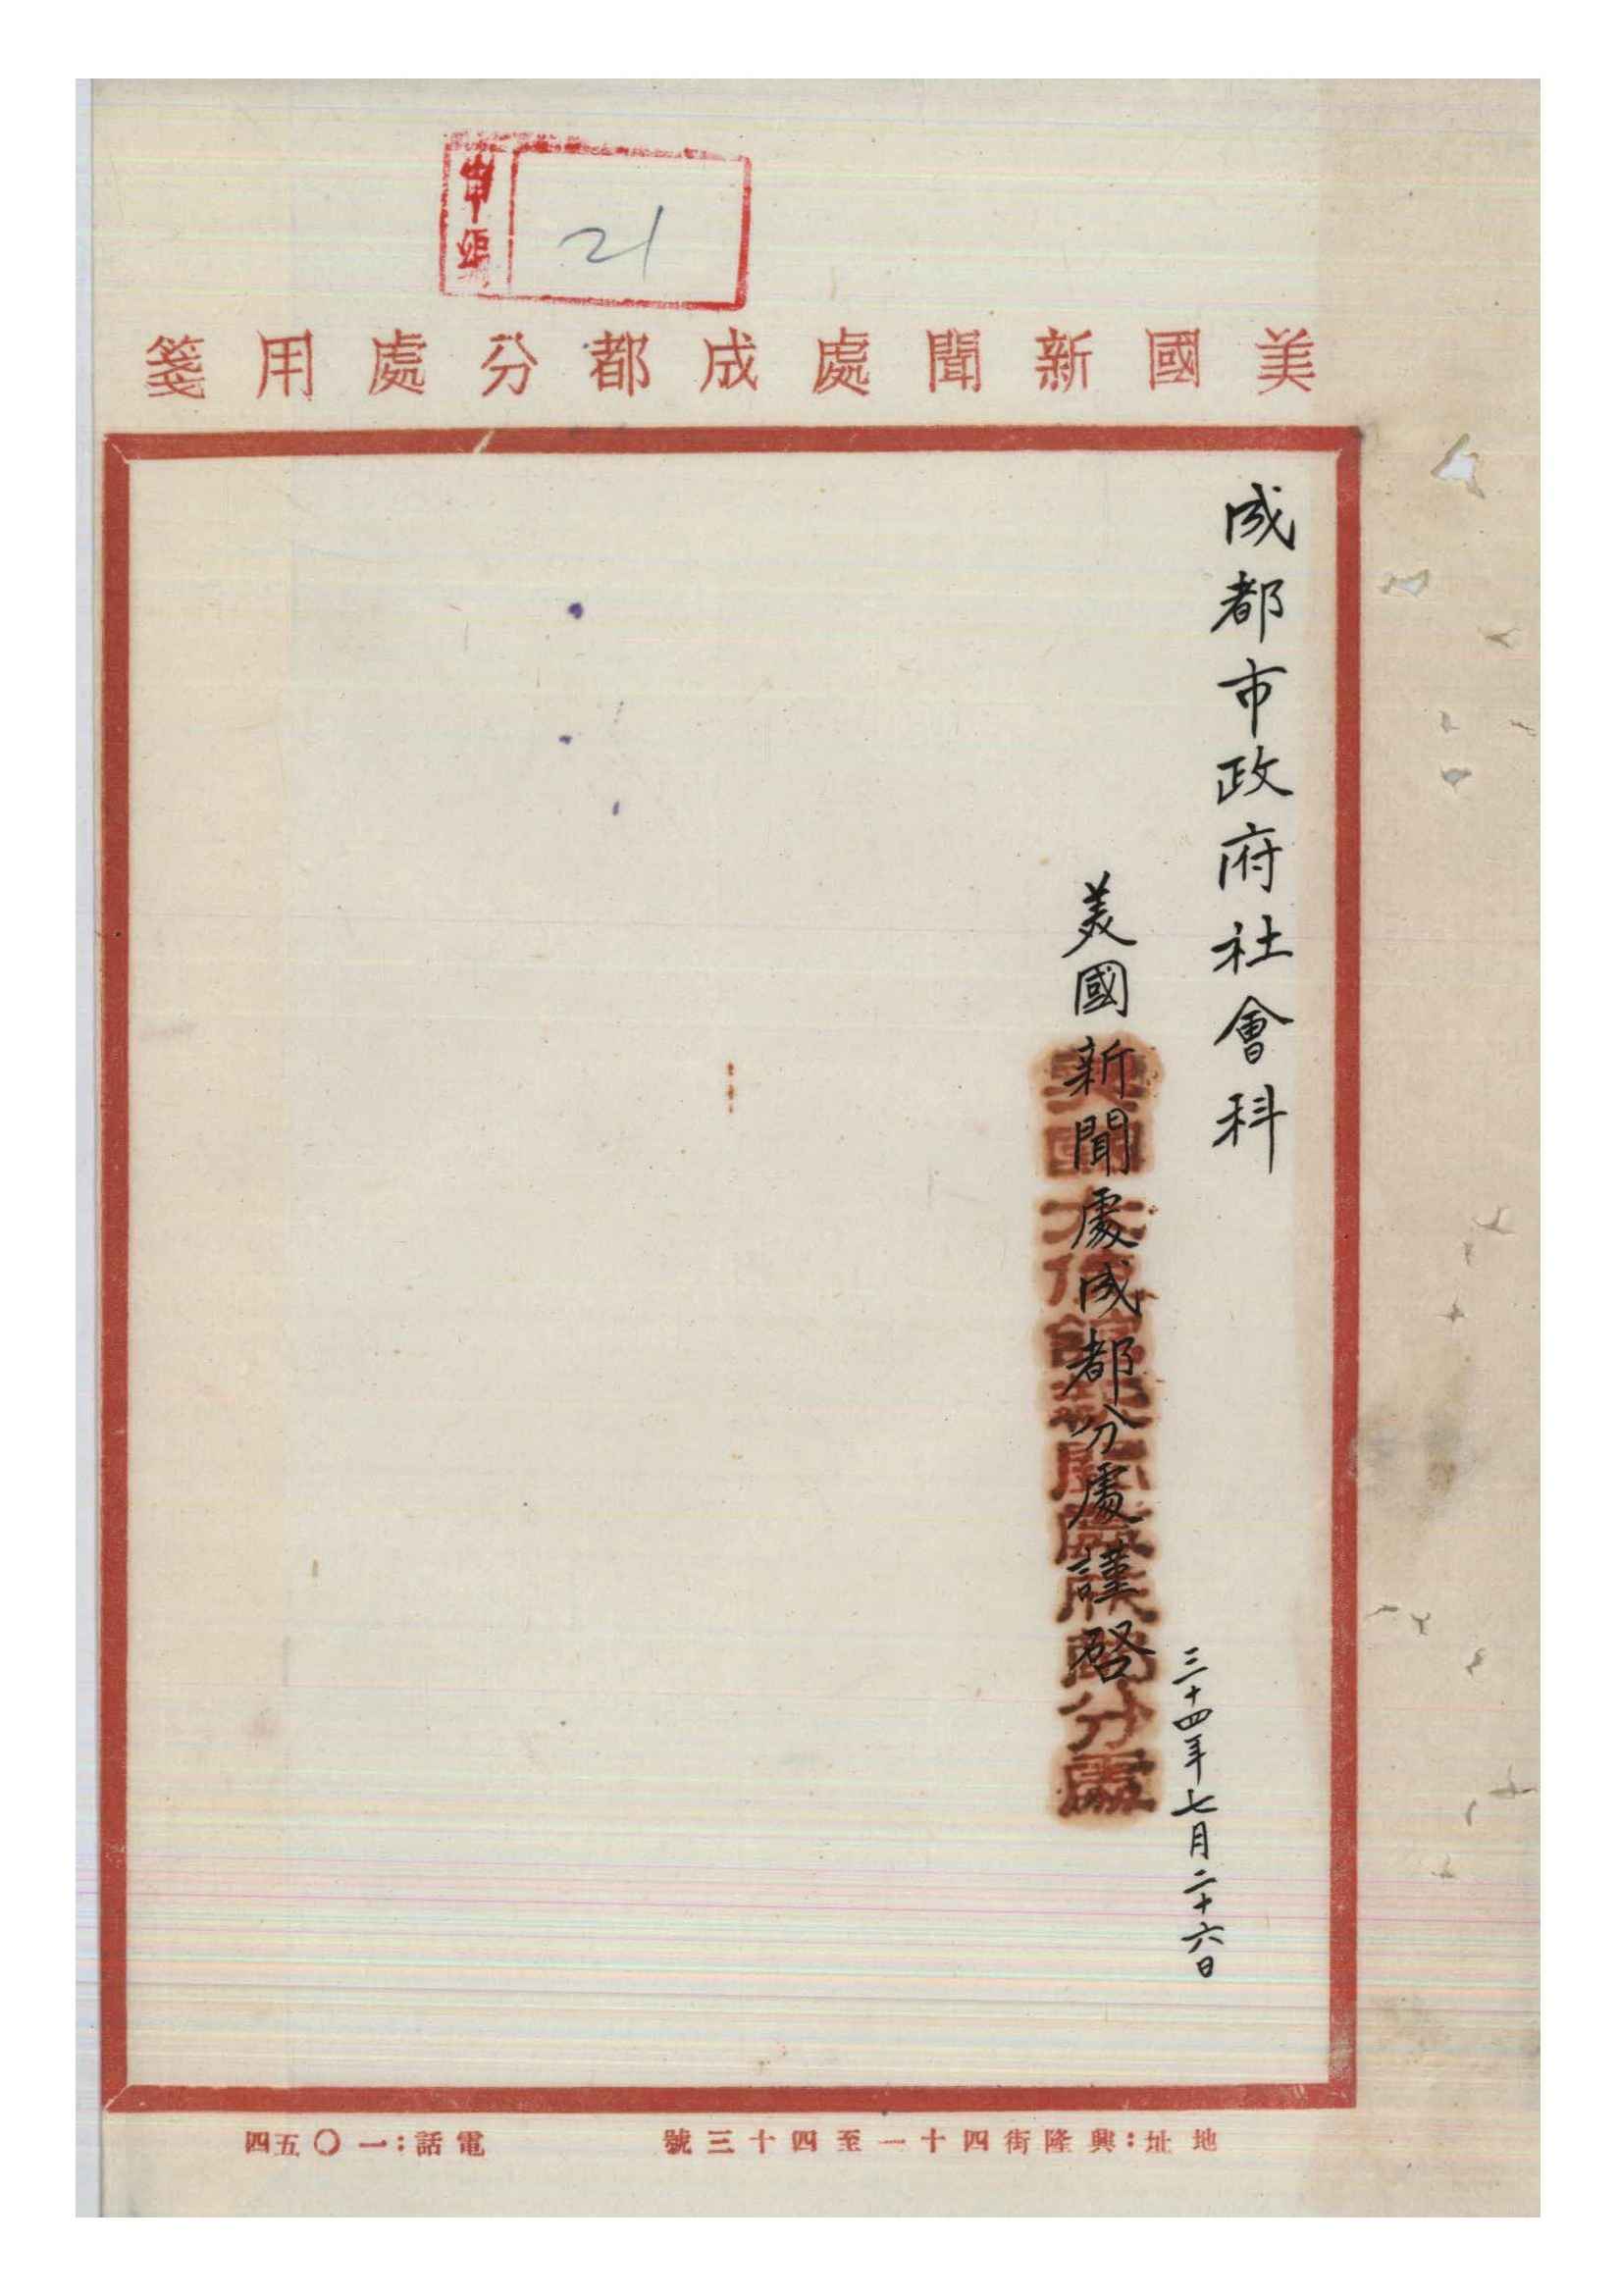 21
美國新聞處成都分處用箋
成都市政府社會科
三十四年七月二十六日
美國新聞處成都分處謹啓
地址：興隆街四十一至四十三號
電話：一〇五四